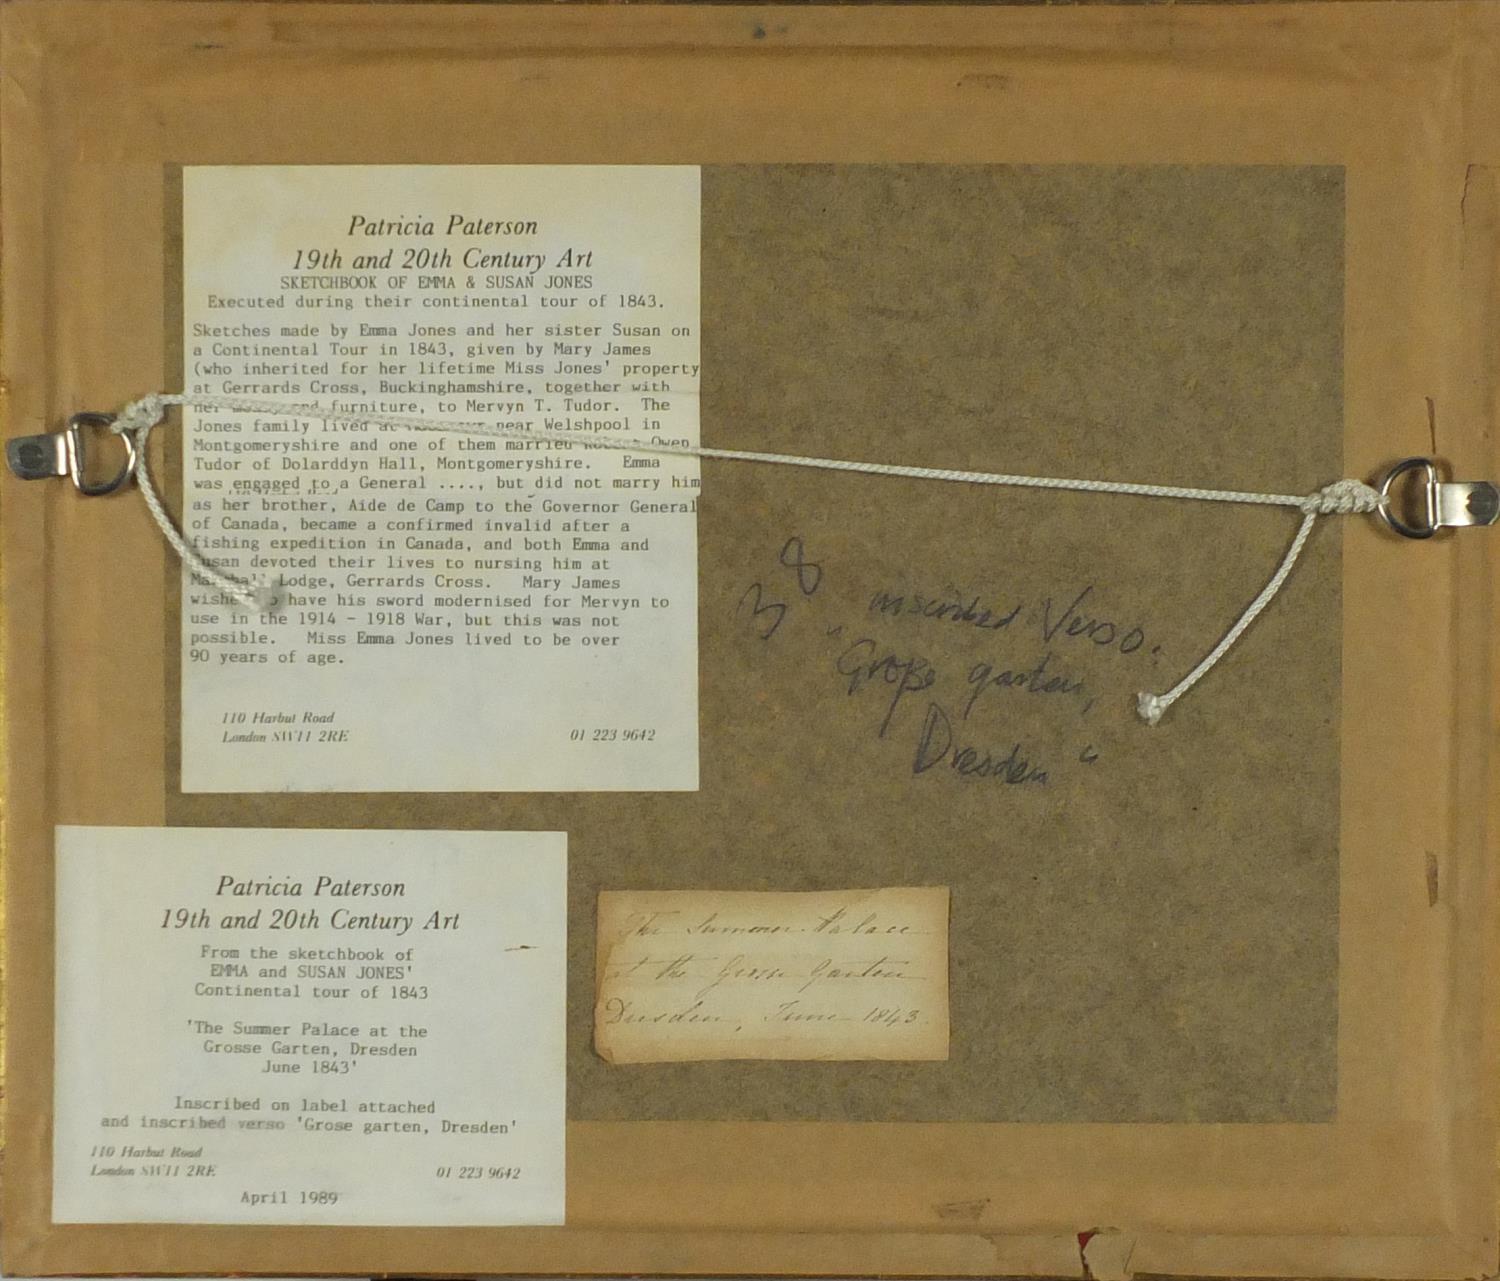 Patricia Paterson
19th and 20th Century Art
SKETCHBOOK OF EMMA & SUSAN JONES
Executed during their continental tour of 1843.
Sketches made by Emma Jones and her sister Susan on
a Continental Tour in 1843, given by Mary James
(who inherited for her lifetime Miss Jones' property
at Gerrards Cross, Buckinghamshire, together with
her and furniture, to Mervyn T. Tudor. The
Jones family lived at near Welshpool in
Montgomeryshire and one of them married Owen
Tudor of Dolarddyn Hall, Montgomeryshire. Emma
was engaged to a General ...., but did not marry him
as her brother, Aide de Camp to the Governor General
of Canada, became a confirmed invalid after a
fishing expedition in Canada, and both Emma and
Susan devoted their lives to nursing him at
Lodge, Gerrards Cross. Mary James
wished to have his sword modernised for Mervyn to
use in the 1914 - 1918 War, but this was not
possible. Miss Emma Jones lived to be over
90 years of age.
110 Harbut Road
London SW11 2RE 01 223 9642
38 inscribed Verso.
"Große garten,
Dresden"
Patricia Paterson
19th and 20th Century Art
From the sketchbook of
EMMA and SUSAN JONES'
Continental tour of 1843
'The Summer Palace at the
Grosse Garten, Dresden
June 1843'
Inscribed on label attached
and inscribed verso 'Grose garten, Dresden'
110 Harbut Road
London SW11 2RE 01 223 9642
April 1989
The Summer Palace
at the Grosse Garten
Dresden, June 1843.